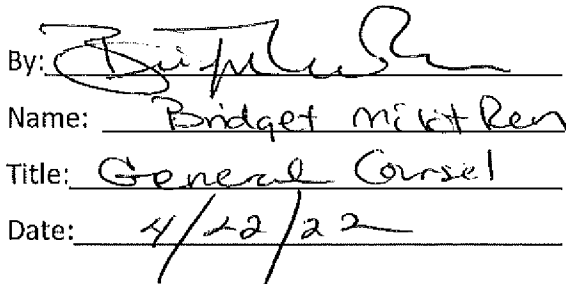 By:
Name: Bridget
Title: General Counsel
Date: 4/22/22